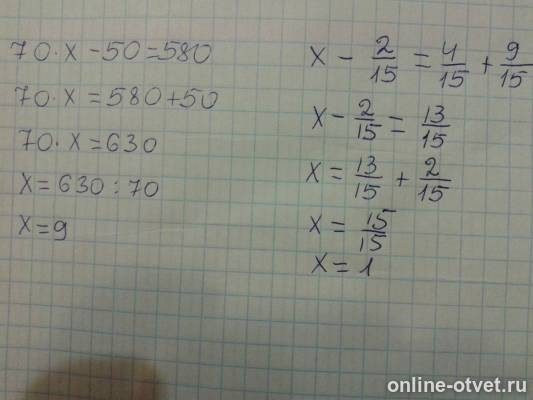 70·x-50=580
70·x=580+50
70·x=630
x=630:70
x=9
x - 2/15 = 4/15 + 9/15
x - 2/15 = 13/15
x = 13/15 + 2/15
x = 15/15
x = 1
online-otvet.ru